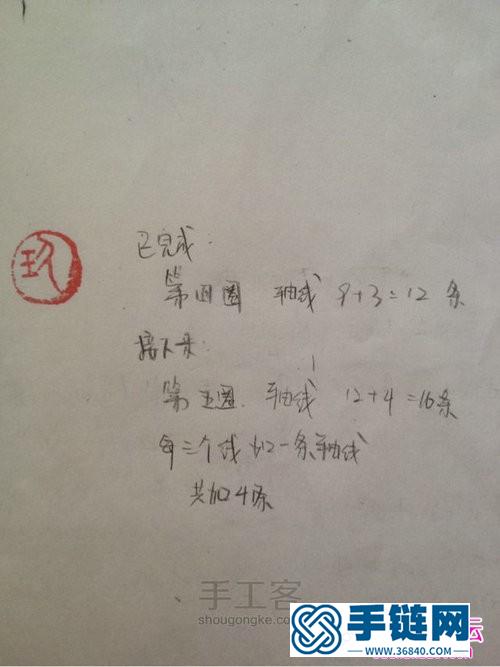 玖
已完成.
第四圈 轴线 9+3=12 条
接下来:
第五圈. 轴线 12+4=16条
每三个线加一条轴线
共加4条
手工客
shougongke.com
手链网
www.36840.com
坛